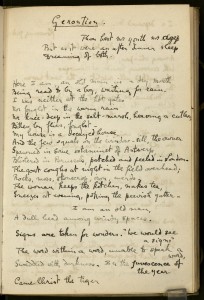 Gerontion.
Thou hast nor youth nor age
But as it were an after dinner sleep
Dreaming of both.
Here I am, an old man in a dry month
Being read to by a boy, waiting for rain.
I was neither at the hot gates
Nor fought in the warm rain
Nor knee deep in the salt marsh, heaving a cutlass,
Bitten by flies, fought.
My house is a decayed house
And the jew squats on the window sill, the owner
Spawned in some estaminet of Antwerp
Blistered in Brussels, patched and peeled in London.
The goat coughs at night in the field overhead;
Rocks, moss, stonecrop, iron, merds.
The woman keeps the kitchen, makes tea,
Sneezes at evening, poking the peevish gutter.
I am an old man,
A dull head among windy spaces.
Signs are taken for wonders. "We would see
a sign"
The word within a word, unable to speak a
word,
Swaddled with darkness. In the juvescence of
the year
Came Christ the tiger